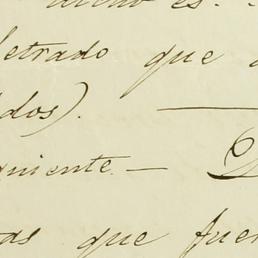 es.
letrado que
dos).
quiente. —
que fuer